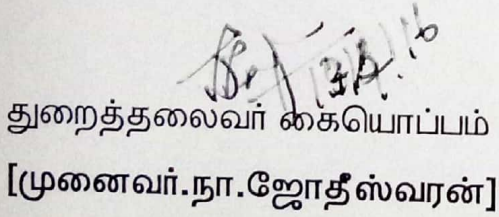 துறைத்தலைவர் கையொப்பம்
[முனைவர்.நா.ஜோதீஸ்வரன்]